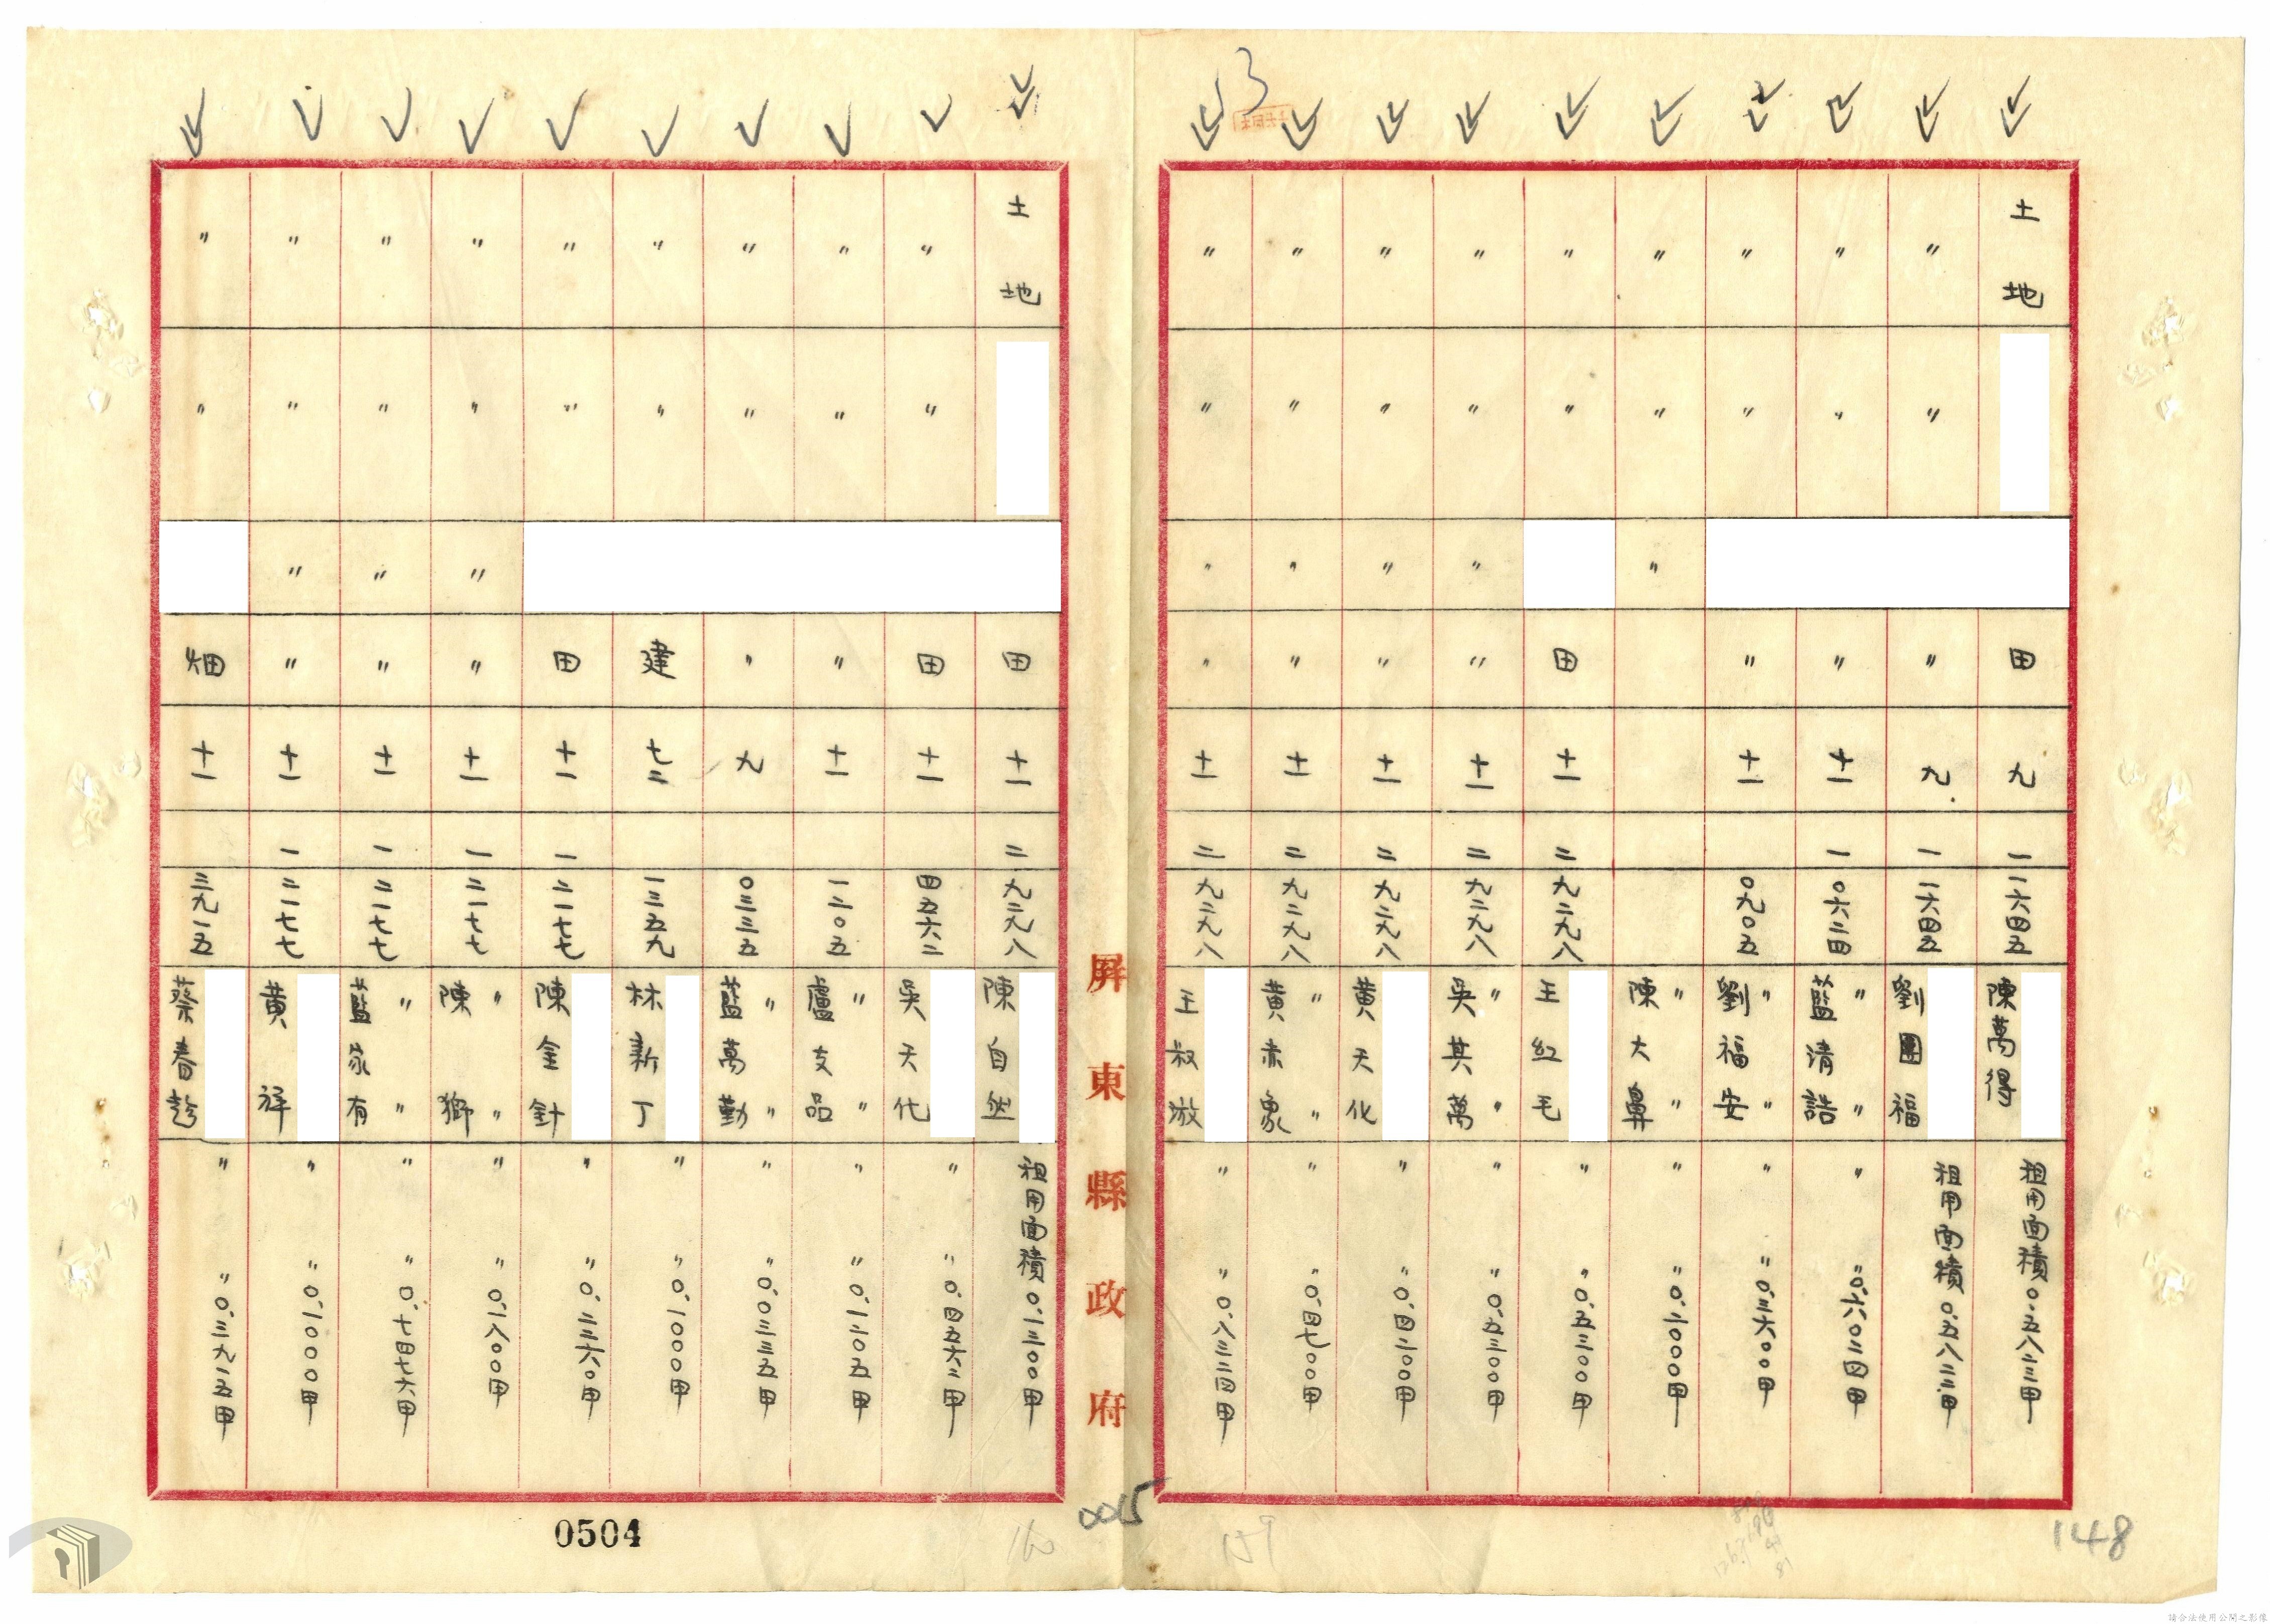 土地 田 九 一 一六四五 陳萬得 租用面積0.五八二三甲
〃 〃 〃 九 一 一六四五 劉團福 租用面積0.五八二二甲
〃 〃 〃 十一 一 0六二四 藍清誥 〃 〃 〃 〃0.六0二四甲
〃 〃 〃 十一 0九0五 劉福安 〃 〃 〃 〃0.三六00甲
〃 〃 〃 陳大鼻 〃 〃 〃 〃0.二000甲
〃 〃 田 十一 二 九二九八 王紅毛 〃 〃0.五三00甲
〃 〃 〃 〃 十一 二 九二九八 吳其萬 〃 〃 〃 〃0.五三00甲
〃 〃 〃 〃 十一 二 九二九八 黃天化 〃 〃0.四二00甲
〃 〃 〃 〃 十一 二 九二九八 黃赤象 〃 〃 〃 〃0.四七00甲
〃 〃 〃 〃 十一 二 九二九八 王叔 〃 〃0.八三二四甲
屏東縣政府
土地 田 十一 二 九二九八 陳自然 租用面積0.一三00甲
〃 〃 田 十一 四五六二 吳天化 〃 〃0.四五六二甲
〃 〃 〃 十一 一二0五 盧支品 〃 〃 〃 〃0.一二0五甲
〃 〃 〃 九 0三三五 藍萬勤 〃 〃 〃 〃0.0三三五甲
〃 〃 建 七二 一三五九 林新丁 〃 〃0.一000甲
〃 〃 田 十一 一 二一七七 陳金針 〃 〃0.二三六0甲
〃 〃 〃 〃 十一 一 二一七七 陳獅 〃 〃 〃 〃0.一八00甲
〃 〃 〃 〃 十一 一 二一七七 藍家有 〃 〃 〃 〃0.七四七六甲
〃 〃 〃 〃 十一 一 二一七七 黃祥 〃 〃0.一000甲
〃 〃 畑 十一 三九一五 蔡春 〃 〃0.三九一五甲
0504
0015
148
請合法使用公開之影像